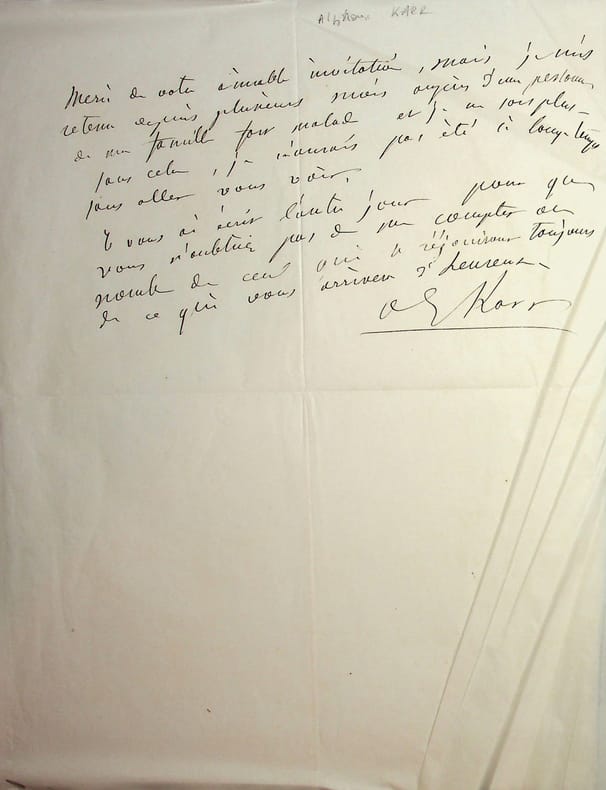 Alphonse KARR
Merci de votre aimable invitation, mais je suis
retenu depuis plusieurs mois auprès d'une personne
de ma famille fort malade et je ne sors plus_
sans cela, je n'aurais pas été si longtemps
sans aller vous voir.
Je vous ai écrit l'autre jour pour que
vous n'oubliez pas de me compter au
nombre de ceux qui se réjouiront toujours
de ce qui vous arrivera d'heureux_
A Karr